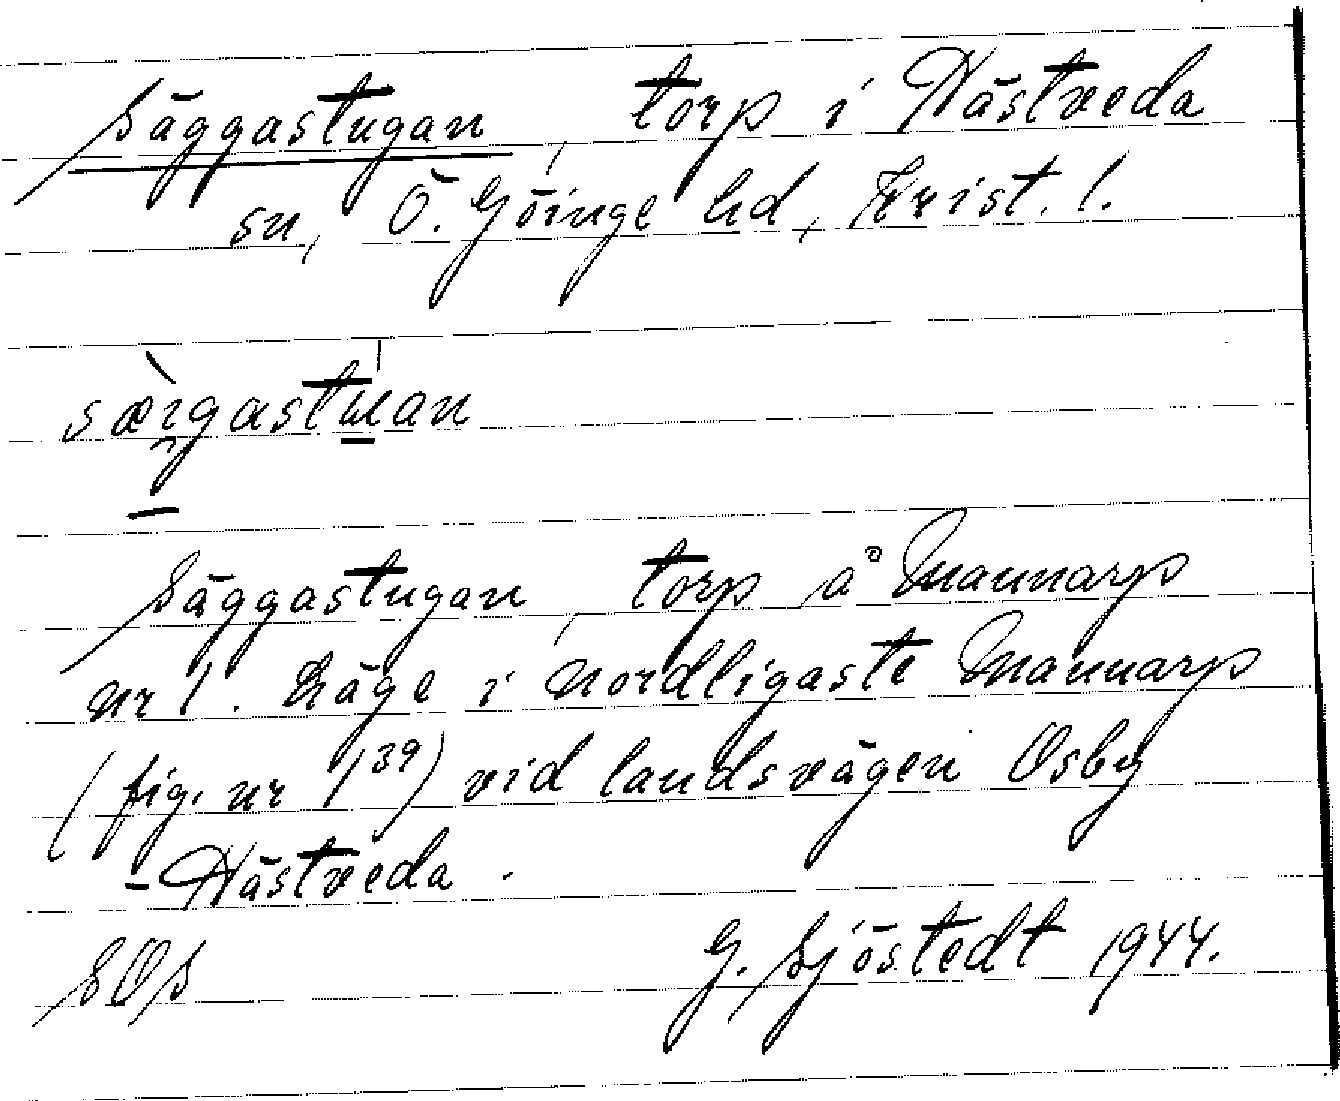 Säggastugan, torp i Hästveda
sn, Ö. Göinge hd, Krist. l.
Säggastugan, torp å Mannarp
nr 1. Läge i nordligaste Mannarp
(fig. nr 139) vid landsvägen Osby
- Hästveda.
SOS G. Sjöstedt 1944.